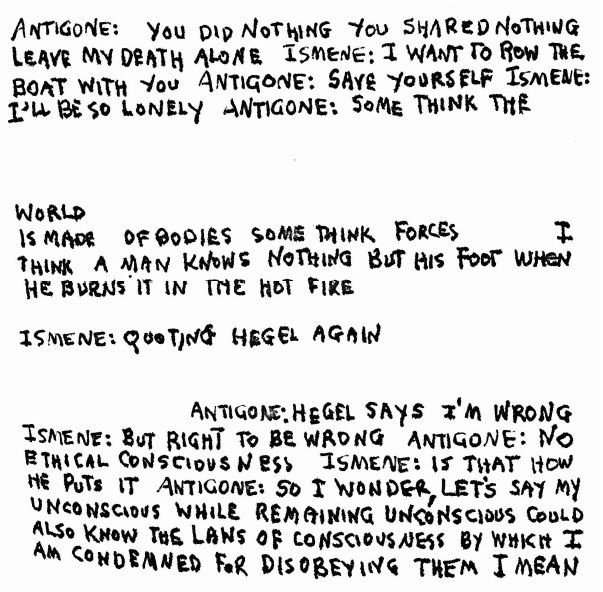 ANTIGONE: YOU DID NOTHING YOU SHARED NOTHING
LEAVE MY DEATH ALONE ISMENE: I WANT TO ROW THE
BOAT WITH YOU ANTIGONE: SAVE YOURSELF ISMENE:
I'LL BE SO LONELY ANTIGONE: SOME THINK THE
WORLD
IS MADE OF BODIES SOME THINK FORCES I
THINK A MAN KNOWS NOTHING BUT HIS FOOT WHEN
HE BURNS IT IN THE HOT FIRE
ISMENE: QUOTING HEGEL AGAIN
ANTIGONE: HEGEL SAYS I'M WRONG
ISMENE: BUT RIGHT TO BE WRONG ANTIGONE: NO
ETHICAL CONSCIOUSNESS ISMENE: IS THAT HOW
HE PUTS IT ANTIGONE: SO I WONDER, LET'S SAY MY
UNCONSCIOUS WHILE REMAINING UNCONSCIOUS COULD
ALSO KNOW THE LAWS OF CONSCIOUSNESS BY WHICH I
AM CONDEMNED FOR DISOBEYING THEM I MEAN